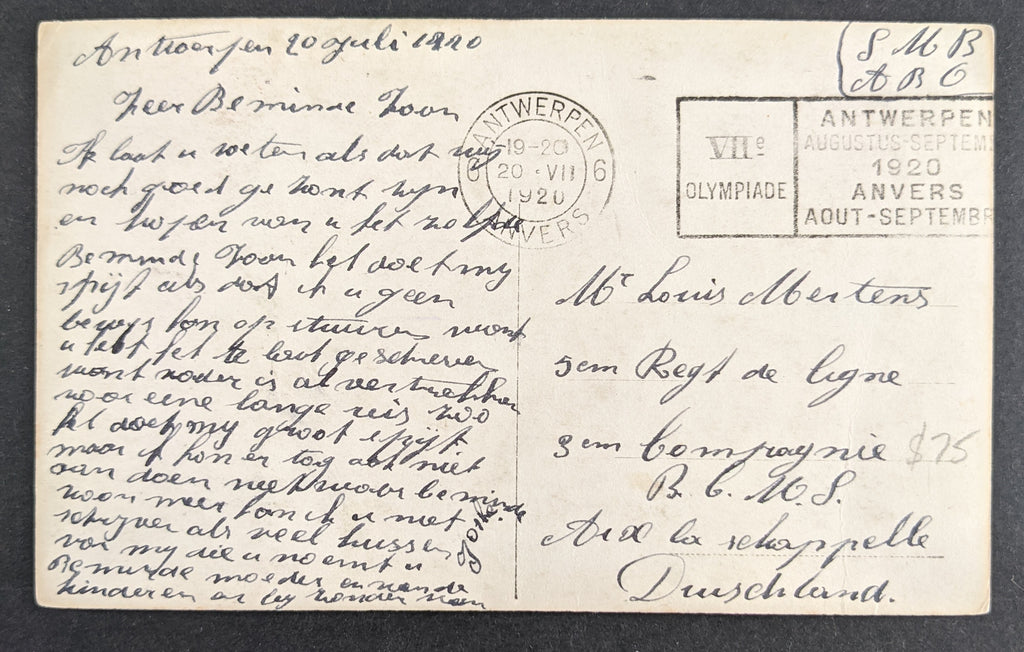 Antwerpen 20 Juli 1920
S M B
A B O
Zeer Beminde Zoon
ANTWERPEN
6 19-20 6
20 VII
1920
ANVERS
VIIe
OLYMPIADE
ANTWERPEN
AUGUSTUS-SEPTEM
1920
ANVERS
AOUT-SEPTEMBR
Ik laat u weten als dat wij
noch goed ge zont zyn
en hopen van u het zelfde
Beminde Zoon het doet my
spijt als dat ik u geen
bewys kon op stuuren want
u hebt het te laat geschreven
want vader is al vertrokken
voor eene lange reis zoo
het doet my groot spijt
maar ik kon er tog ook niet
aan doen niet waar beminde
zoon meer kan ik u niet
schryven als veel kussen
van my die u noemt u
Beminde moeder en van de
kinderen en by zonder van
Joske
Mr Louis Mertens
5em Regt de ligne
3em Compagnie
$75
B. C. M. S.
Aix la schappelle
Duischland.